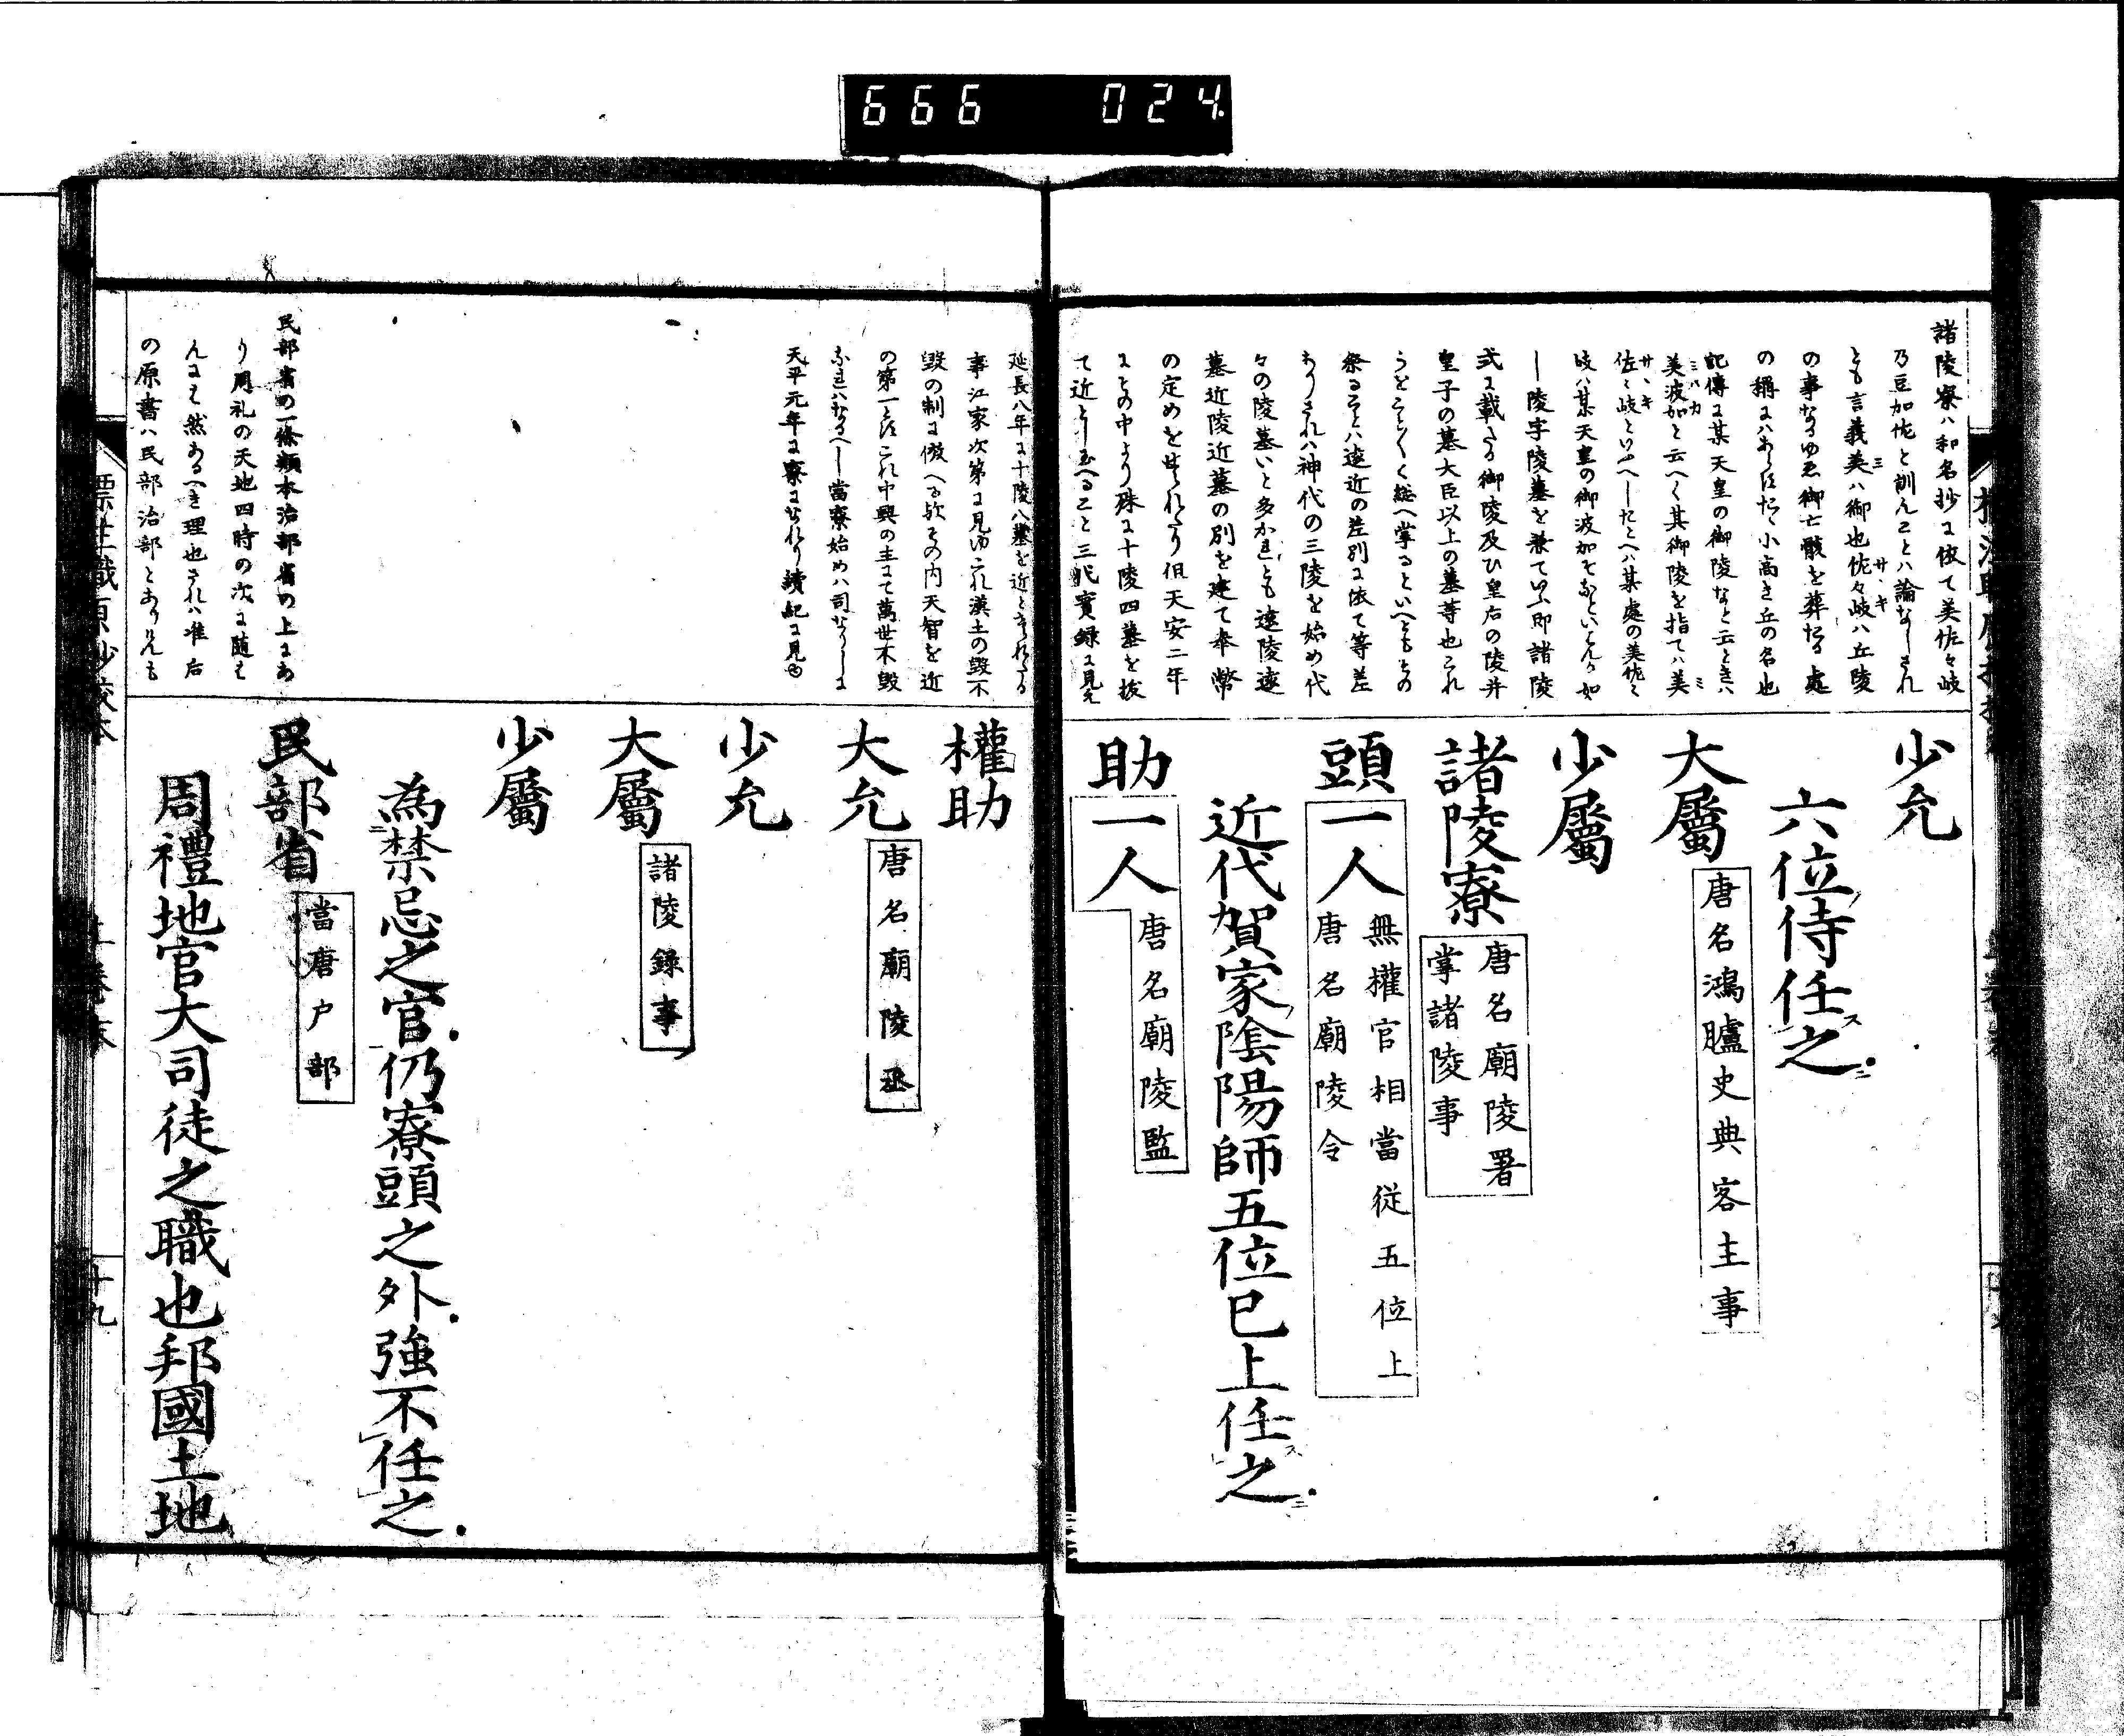 666 024
諸陵寮ハ和名抄ニ依て美佐々岐
乃豆加佐と訓んことハ論なしされ
とも言義美ハ御也佐々岐ハ丘陵
の事なるゆゑ御亡骸を葬たる處
の稱にハあらねたゝ小高き丘の名也
記傳に某天皇の御陵なと云ときハ
美波加と云へく其御陵を指てハ美
佐々岐といふへしたとへハ某處の美佐々
岐ハ某天皇の御波加そなといはんか如
し陵字陵墓を兼ていふ即諸陵
式に載たる御陵及ひ皇后の陵并
皇子の墓大臣以上の墓等也これ
らをことく総へ掌るといへともその
祭ることハ遠近の差別に依て等差
ありされハ神代の三陵を始め代
々の陵墓いと多かれとも遠陵遠
墓近陵近墓の別を建て奉幣
の定めをせられたり但天安二年
にその中より殊に十陵四墓を抜
て近としるへること三代實録に見え
少允
六位侍任之
大屬
唐名鴻臚史典客主事
少屬
諸陵寮
唐名廟陵署
掌諸陵事
頭一人
無權官相當従五位上
唐名廟陵令
近代賀家陰陽師五位已上任之
助一人
唐名廟陵監
延長八年に十陵八墓を近とせられたる
事江家次第に見ゆこれ漢土の毀不
毀の制に倣へる歟その内天智を近
の第一とすこれ中興の主にて萬世不毀
なれハなるへし當寮始めハ司なりしに
天平元年に寮になれり續紀に見ゆ
民部省の一條類本治部省の上にあ
り周礼の天地四時の次に随はゝ
んにも然あるへき理也されハ准后
の原書ハ民部治部とありけんも
權助
大允
唐名廟陵丞
少允
大屬
諸陵録事
少屬
為禁忌之官仍寮頭之外強不任之
民部省
當唐户部
周禮地官大司徒之職也邦國土地
標注職原抄校本
十九